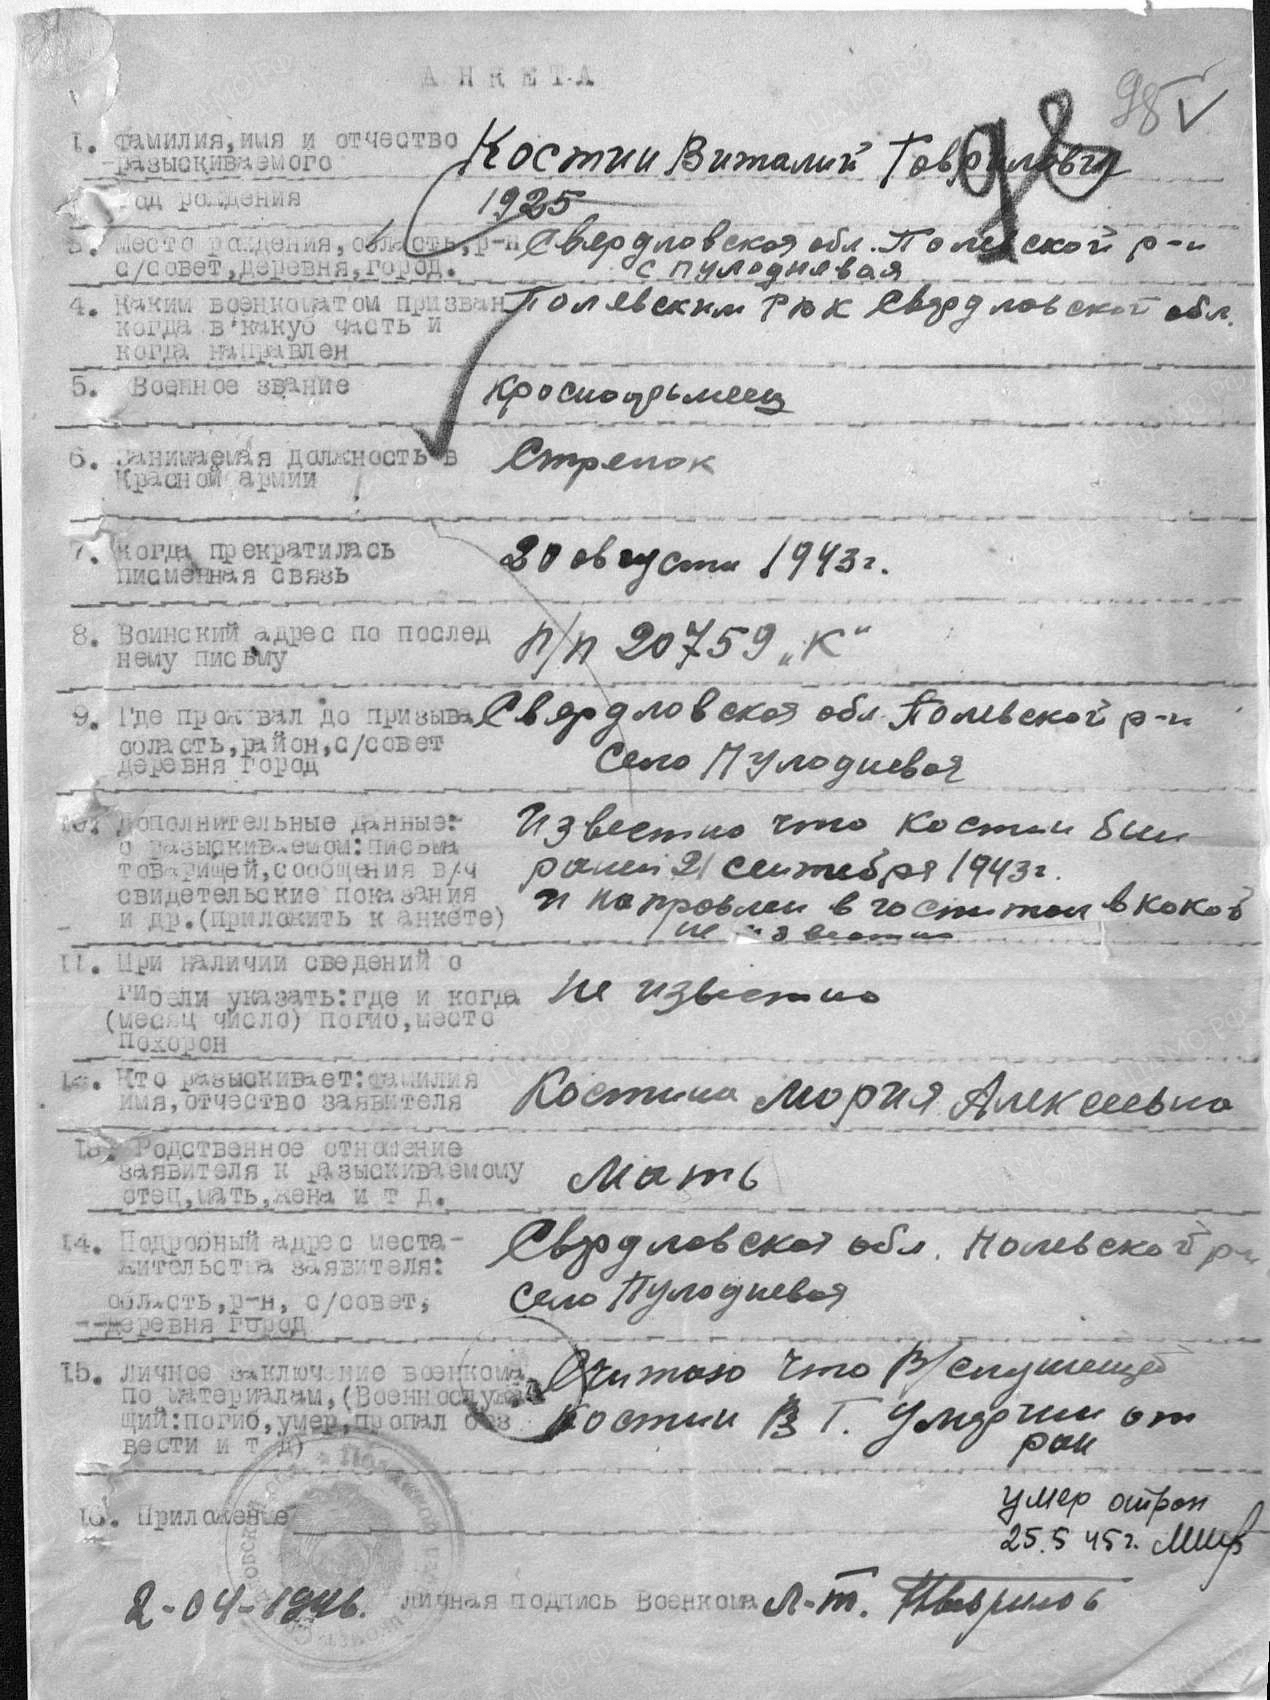 АНКЕТА
98 V
98
1. Фамилия, имя и отчество Костин Виталий Гаврилович
разыскиваемого
год рождения 1925
3. Место рождения, область, р-н Свердловская обл. Полевской р-н
с/совет, деревня, город. с Пулодневая
4. Каким военкоматом призван Полевским РВК Свердловской обл.
когда в какую часть и
когда направлен
5. Военное звание красноармеец
6. Занимаемая должность в Стрелок
Красной армии
7. Когда прекратилась 20 августа 1943 г.
писменная связь
8. Воинский адрес по послед п/п 20759 „К"
нему письму
9. Где проживал до призыва Свердловская обл. Полевской р-н
область, район, с/совет
деревня город село Пулодневая
10. Дополнительные данные: Известно что Костин был
о разыскиваемом: письма
товарищей, сообщения в/ч ранен 21 сентября 1943 г.
свидетельские показания
и др. (приложить к анкете) и направлен в госпитал в какой
не известно
11. При наличии сведений о
гибели указать: где и когда не известно
(месяц число) погиб, место
похорон
12. Кто разыскивает: фамилия Костина Мария Алексеевна
имя, отчество заявителя
13. Родственное отношение
заявителя к разыскиваемому Мать
отец, мать, жена и т д.
14. Подробный адрес места- Свердловская обл. Полевской р-н
жительства заявителя:
область, р-н, с/совет, село Пулодневая
деревня город
15. Личное заключение военкома Считаю что В/служещей
по материалам, (Военнослужа
щий: погиб, умер, пропал без Костин В Г. умерчим от
вести и т д) ран
умер от ран
16. Приложение
25.5 45 г.
2-04-1946. Личная подпись Военкома л-т.